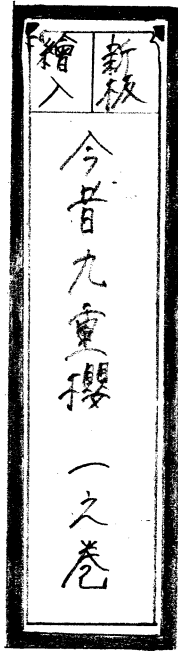 新板
繪入
今昔九重櫻 一之巻